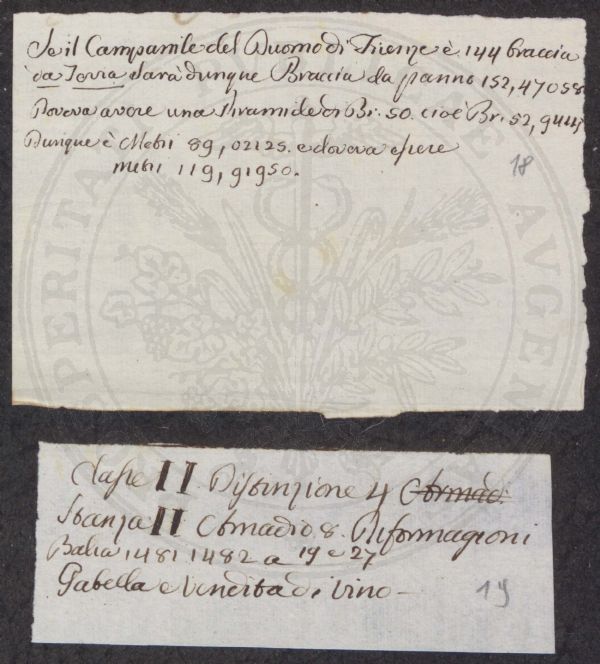 Se il Campanile del Duomo di Firenze è 144 braccia
da Terra sarà dunque Braccia da panno 152, 47058
Doveva avere una Piramide di Br. 50. cioè Br. 52, 941
Dunque è Metri 89, 02125. e doveva essere
metri 119, 91950.
18
PERITA AVGEN
Classe II Distinzione 4 Armad:
Stanza II Armadio 8. Riformagioni
Balia 1481 1482 a 19 e 27
Gabella e Vendita di Vino –
19